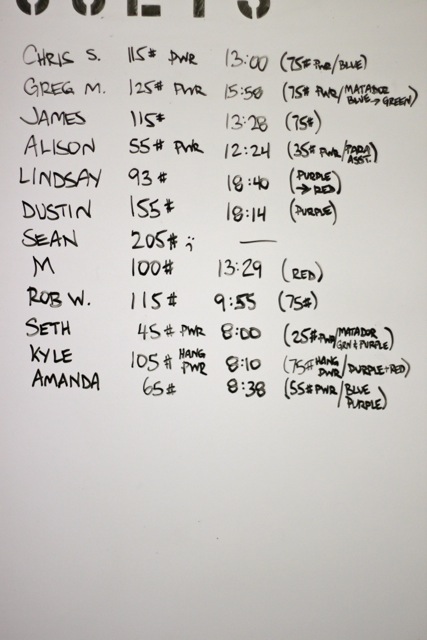 CHRIS S. 115# PWR 13:00 (75# PWR/BLUE)
GREG M. 125# PWR 15:50 (75# PWR/MATADOR BLUE→GREEN)
JAMES 115# 13:28 (75#)
ALISON 55# PWR 12:24 (35# PWR/PARA ASST.)
LINDSAY 93# 18:40 (PURPLE → RED)
DUSTIN 155# 18:14 (PURPLE)
SEAN 205# ;; —
M 100# 13:29 (RED)
ROB W. 115# 9:55 (75#)
SETH 45# PWR 8:00 (25# PWR/MATADOR GRN & PURPLE)
KYLE 105# HANG PWR 8:10 (75# HANG PWR/PURPLE+RED)
AMANDA 65# 8:38 (55# PWR/BLUE PURPLE)